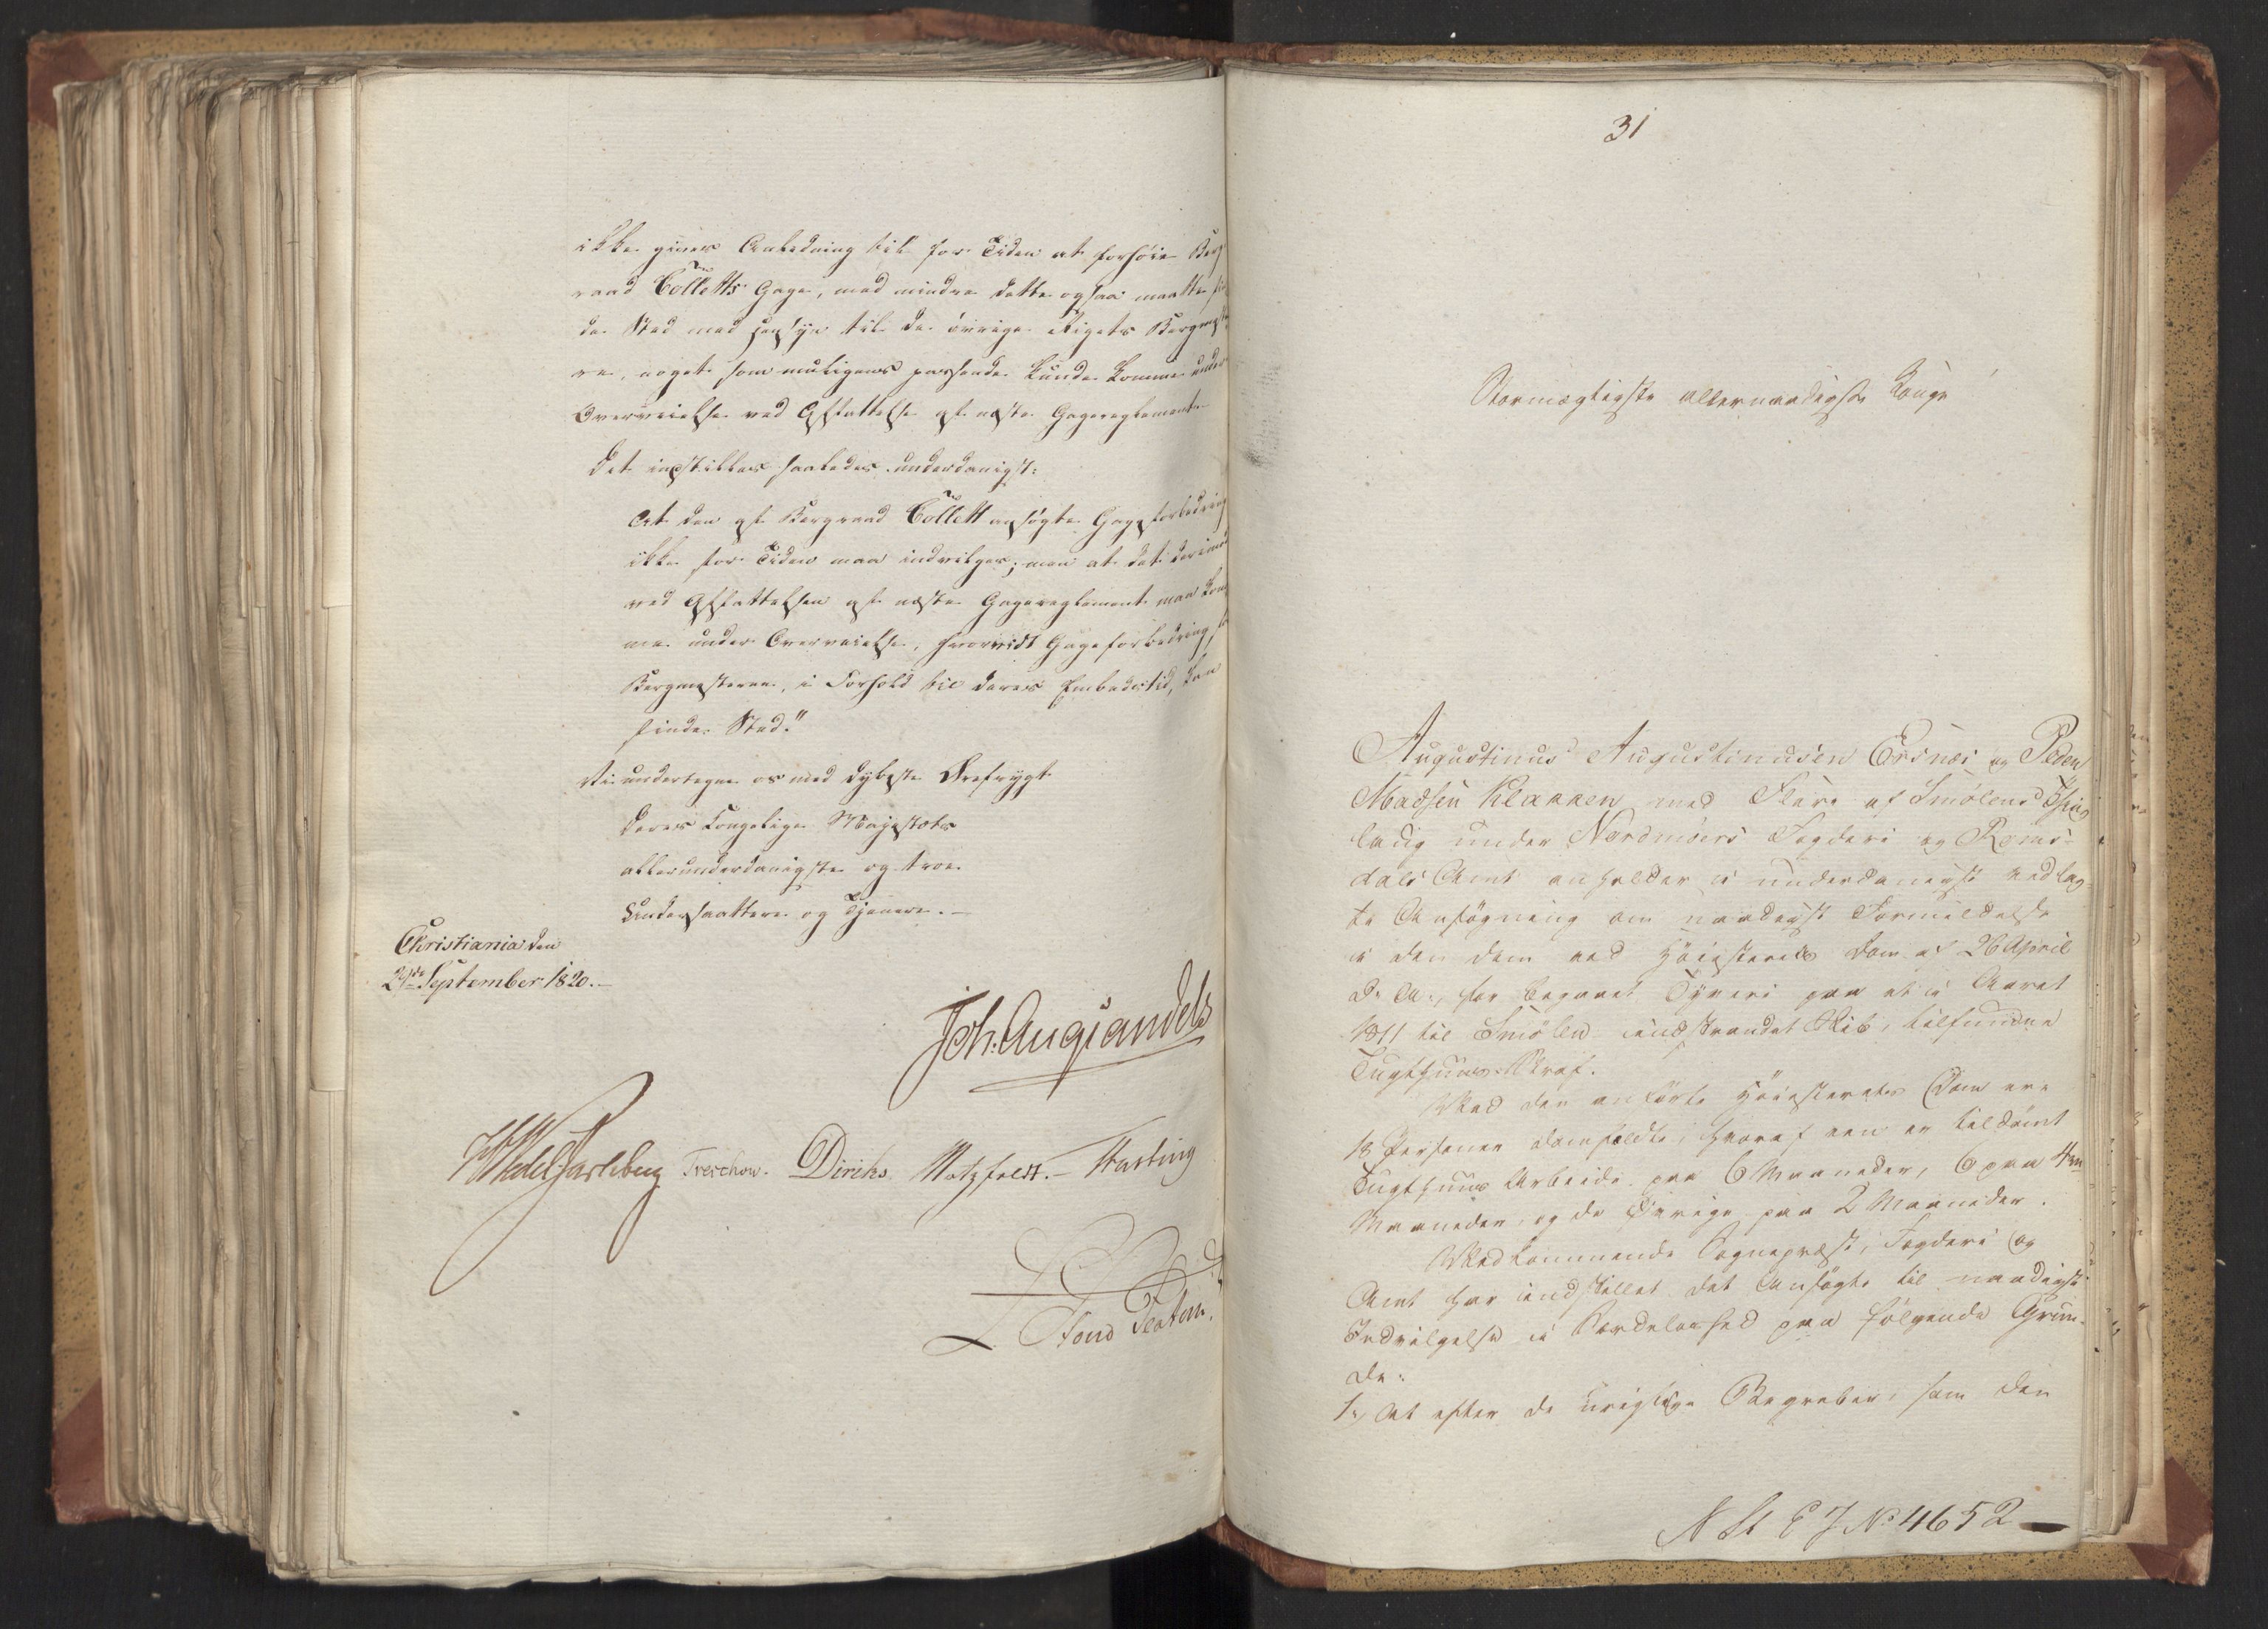 ikke gives Anledning til for Tiden at forhøie Berg
raad Colletts Gage, med mindre dette ogsaa maatte fin
de Sted med Hensyn til de øvrige Rigets Bergmeste
re, noget som muligens passende kunde komme under
Overveielse ved Affattelse af næste Gagereglement
Det indstilles saaledes underdanigst:
At den af Bergraad Collett ansøgte Gageforbedring
ikke for Tiden maa indvilges; men at det derimod
ved Affattelsen af næste Gagereglement maa kom
me under Overveielse, hvorvidt Gageforbedring for
Bergmesterne, i Forhold til deres Embedstid, kan
finde Sted."
Vi undertegne os med dybeste Ærefrygt
Deres Kongelige Majestæts
allerunderdanigste og troe
Undersaattere og Tjenere.–
Christiania den
29de September 1820.–
Joh: Aug: Sandels
HWedel Jarlsberg Treschow. Diriks. Motzfeldt.– Fasting
31
Stormægtigste allernaadigste Konge!
Augustinus Augustinusen Ersnæs og Peder
Madsen Klakken med Flere af Smølens Thing
laug under Nordmøers Fogderi og Roms-
dals Amt anholder i underdanigst vedlag-
te Ansøgning om naadigst Formildelse
i den dem ved Høiesterets Dom af 26 April
d: A:, for begaaet Tyveri paa et i Aaret
1811 til Smølen indstrandet Skib, tilfundne
Tugthuus Straf.
Ved den anførte Høiesterets Dom ere
18 Personer domfældte, hvoraf een er tildømt
Tugthuus Arbeide paa 6 Maaneder, 6 paa 4re
Maaneder, og de Øvrige paa 2 Maaneder.
Vedkommende Sognepræst, Fogderi og
Amt har indstillet det Ansøgte til naadigst
Indvilgelse i Særdeleshed paa følgende Grun-
de:
1.) At efter de urigtige Begreber, som den
N St E J No 4652